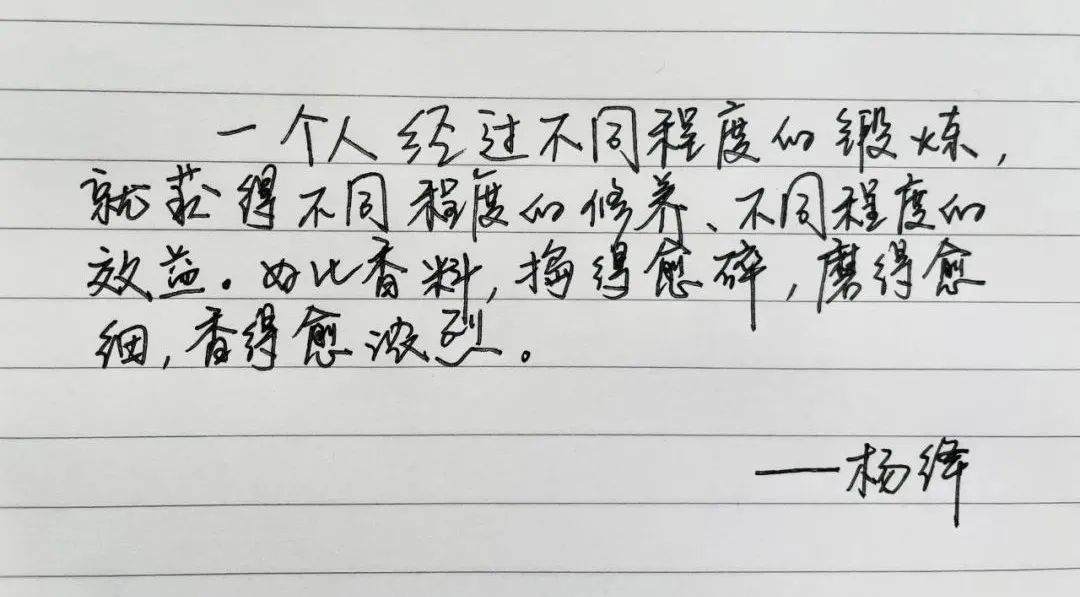 一个人经过不同程度的锻炼,
就获得不同程度的修养、不同程度的
效益。如比香料,捣得愈碎,磨得愈
细,香得愈浓烈。
——杨绛